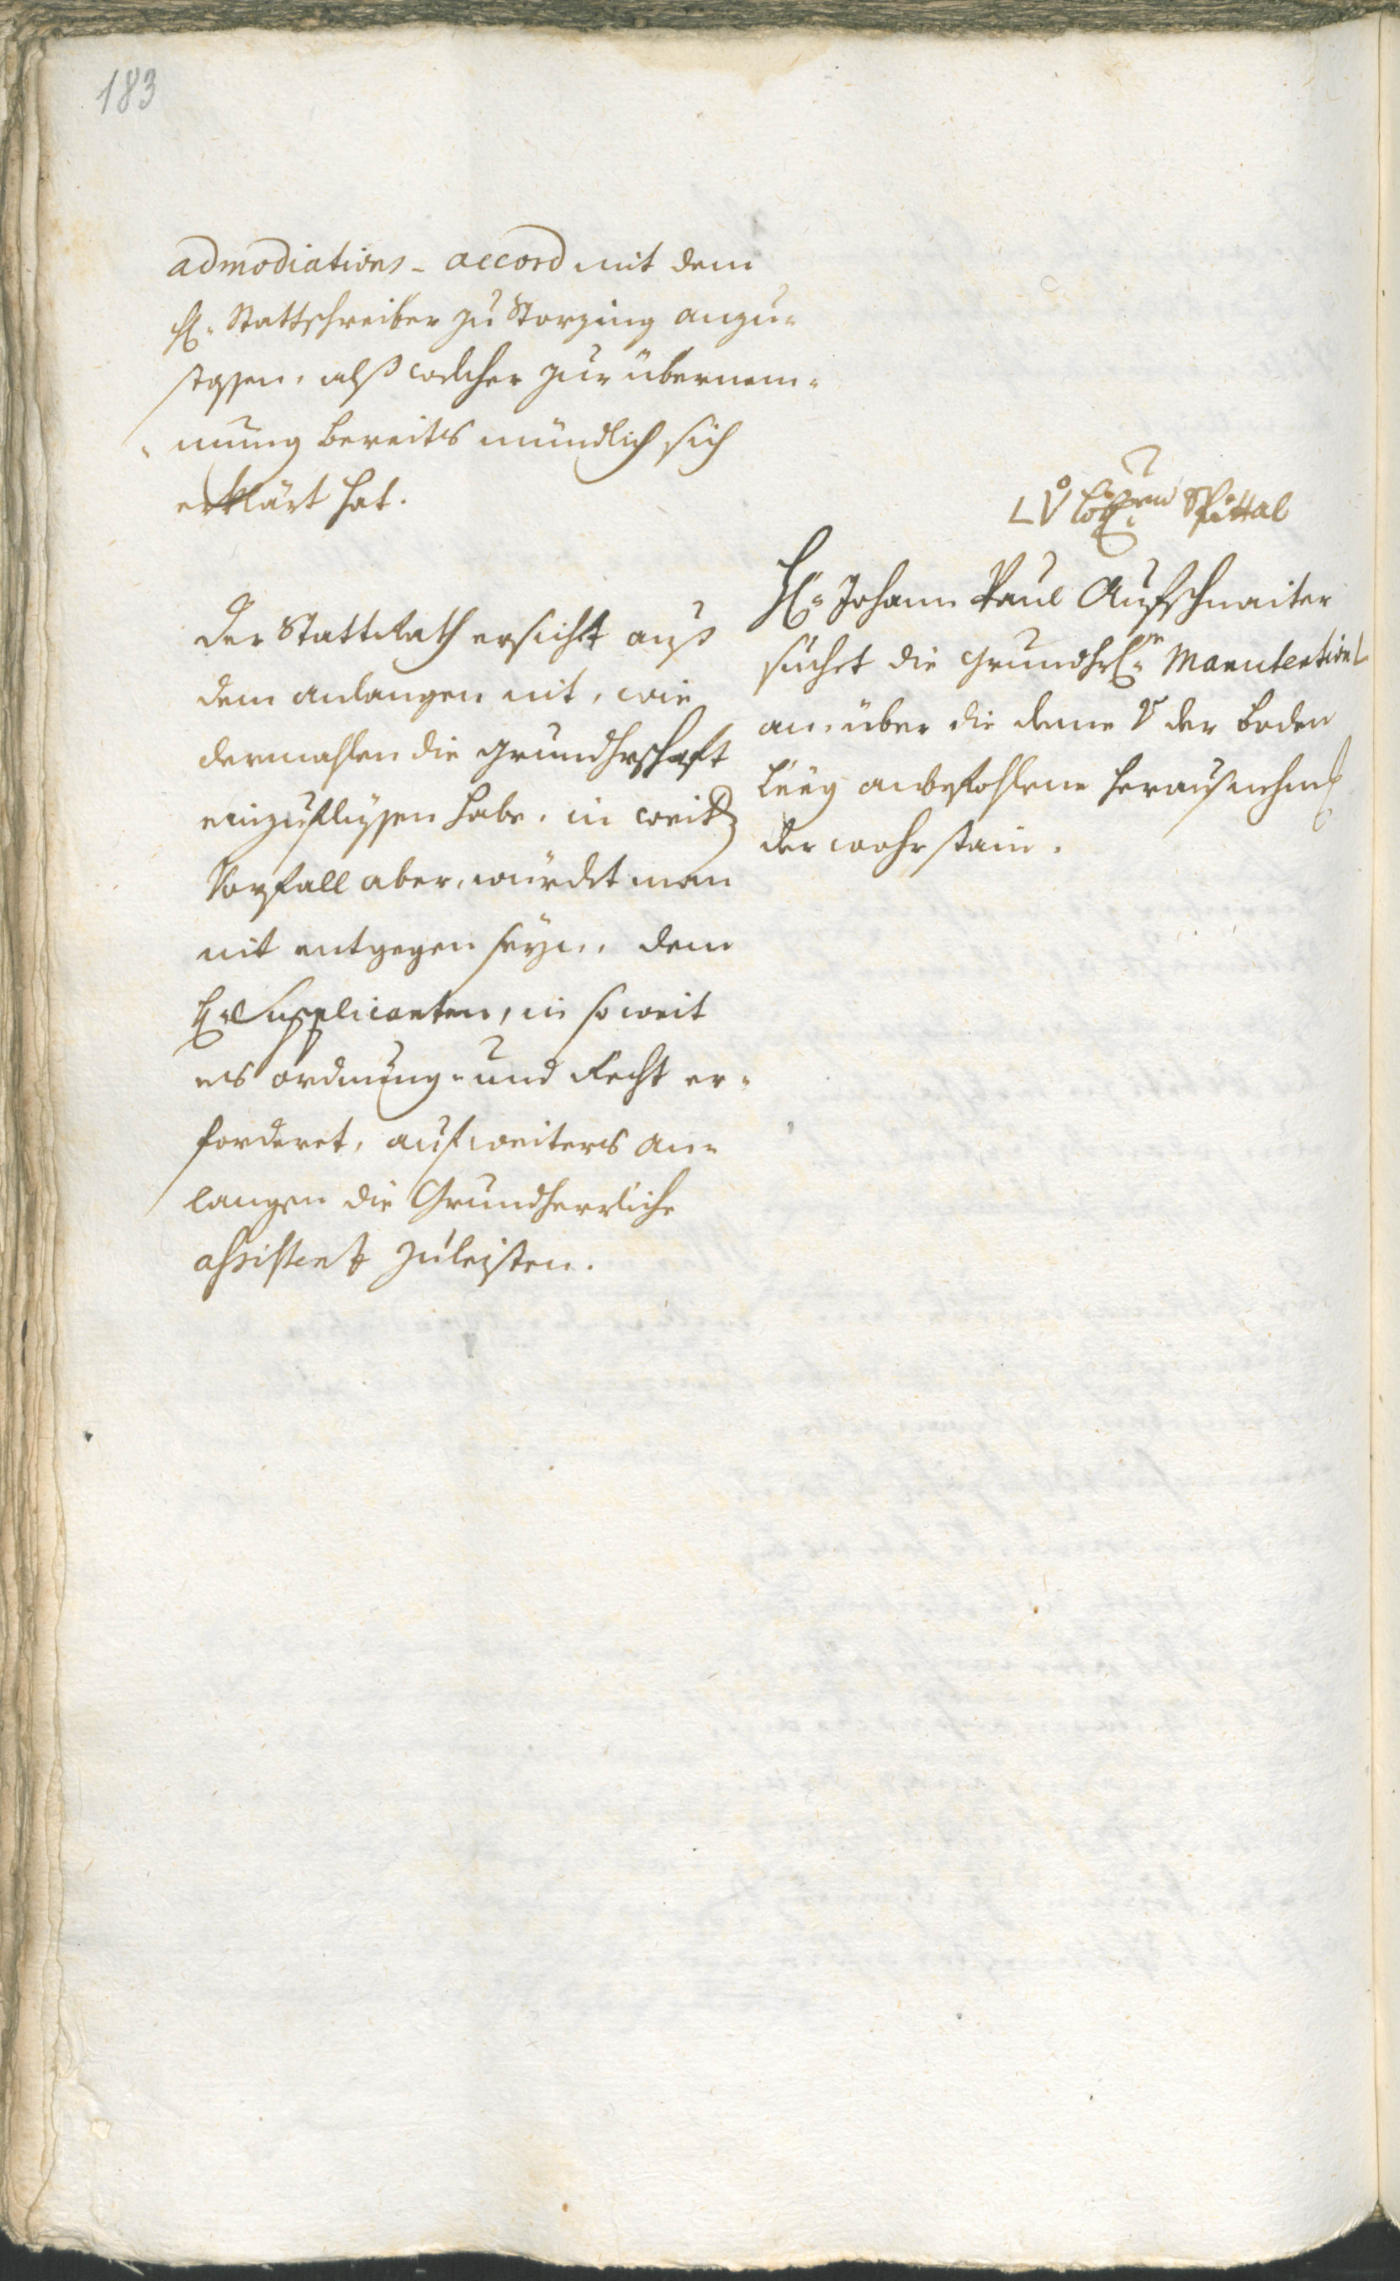 183
admodiations - accord mit dem
H: Stattschreiber zu Storzing anzu=
stossen, alß welcher zur übernem=
mung bereits mündlich sich
erklärt hat.
Der Stattrath ersicht auß
dem anlangen nit, wie
dermahlen die grundhrschaft
einzuflüssen habe, in weitr
Vorfall aber, würdet man
nit entgegen seyn, dem
H: Supplicanten, in so weit
es ordnung- und Recht er=
forderet, auf weiters an=
langen die Grundherrliche
assistent zuleisten.
Spittal
H: Johann Paul Aufschnaiter
suchet die grundhrl: Manutention
an, über die deme der boden
anbefohlene herausnehm
der wohrstain.